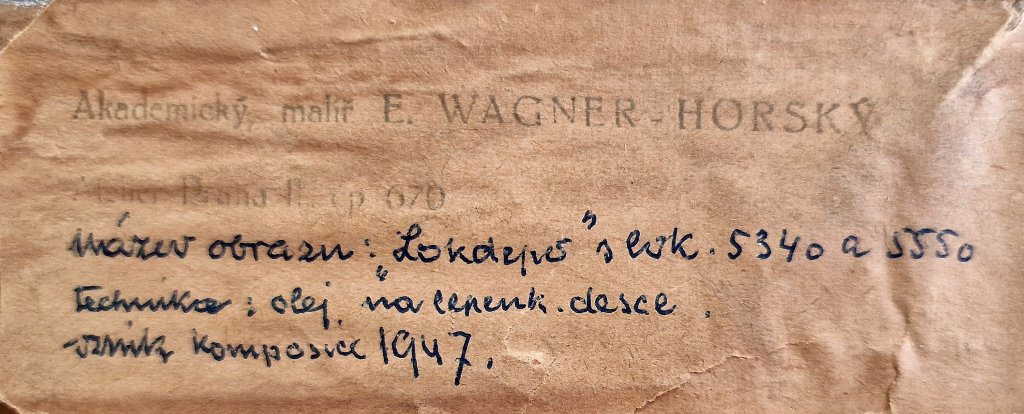 Akademický malíř E. WAGNER-HORSKÝ
Atelier Praha II. čp 670
Název obrazu: „Lokdepo" s lok. 5340 a 5550
technika: olej na lepenk. desce.
vznik komposice 1947.